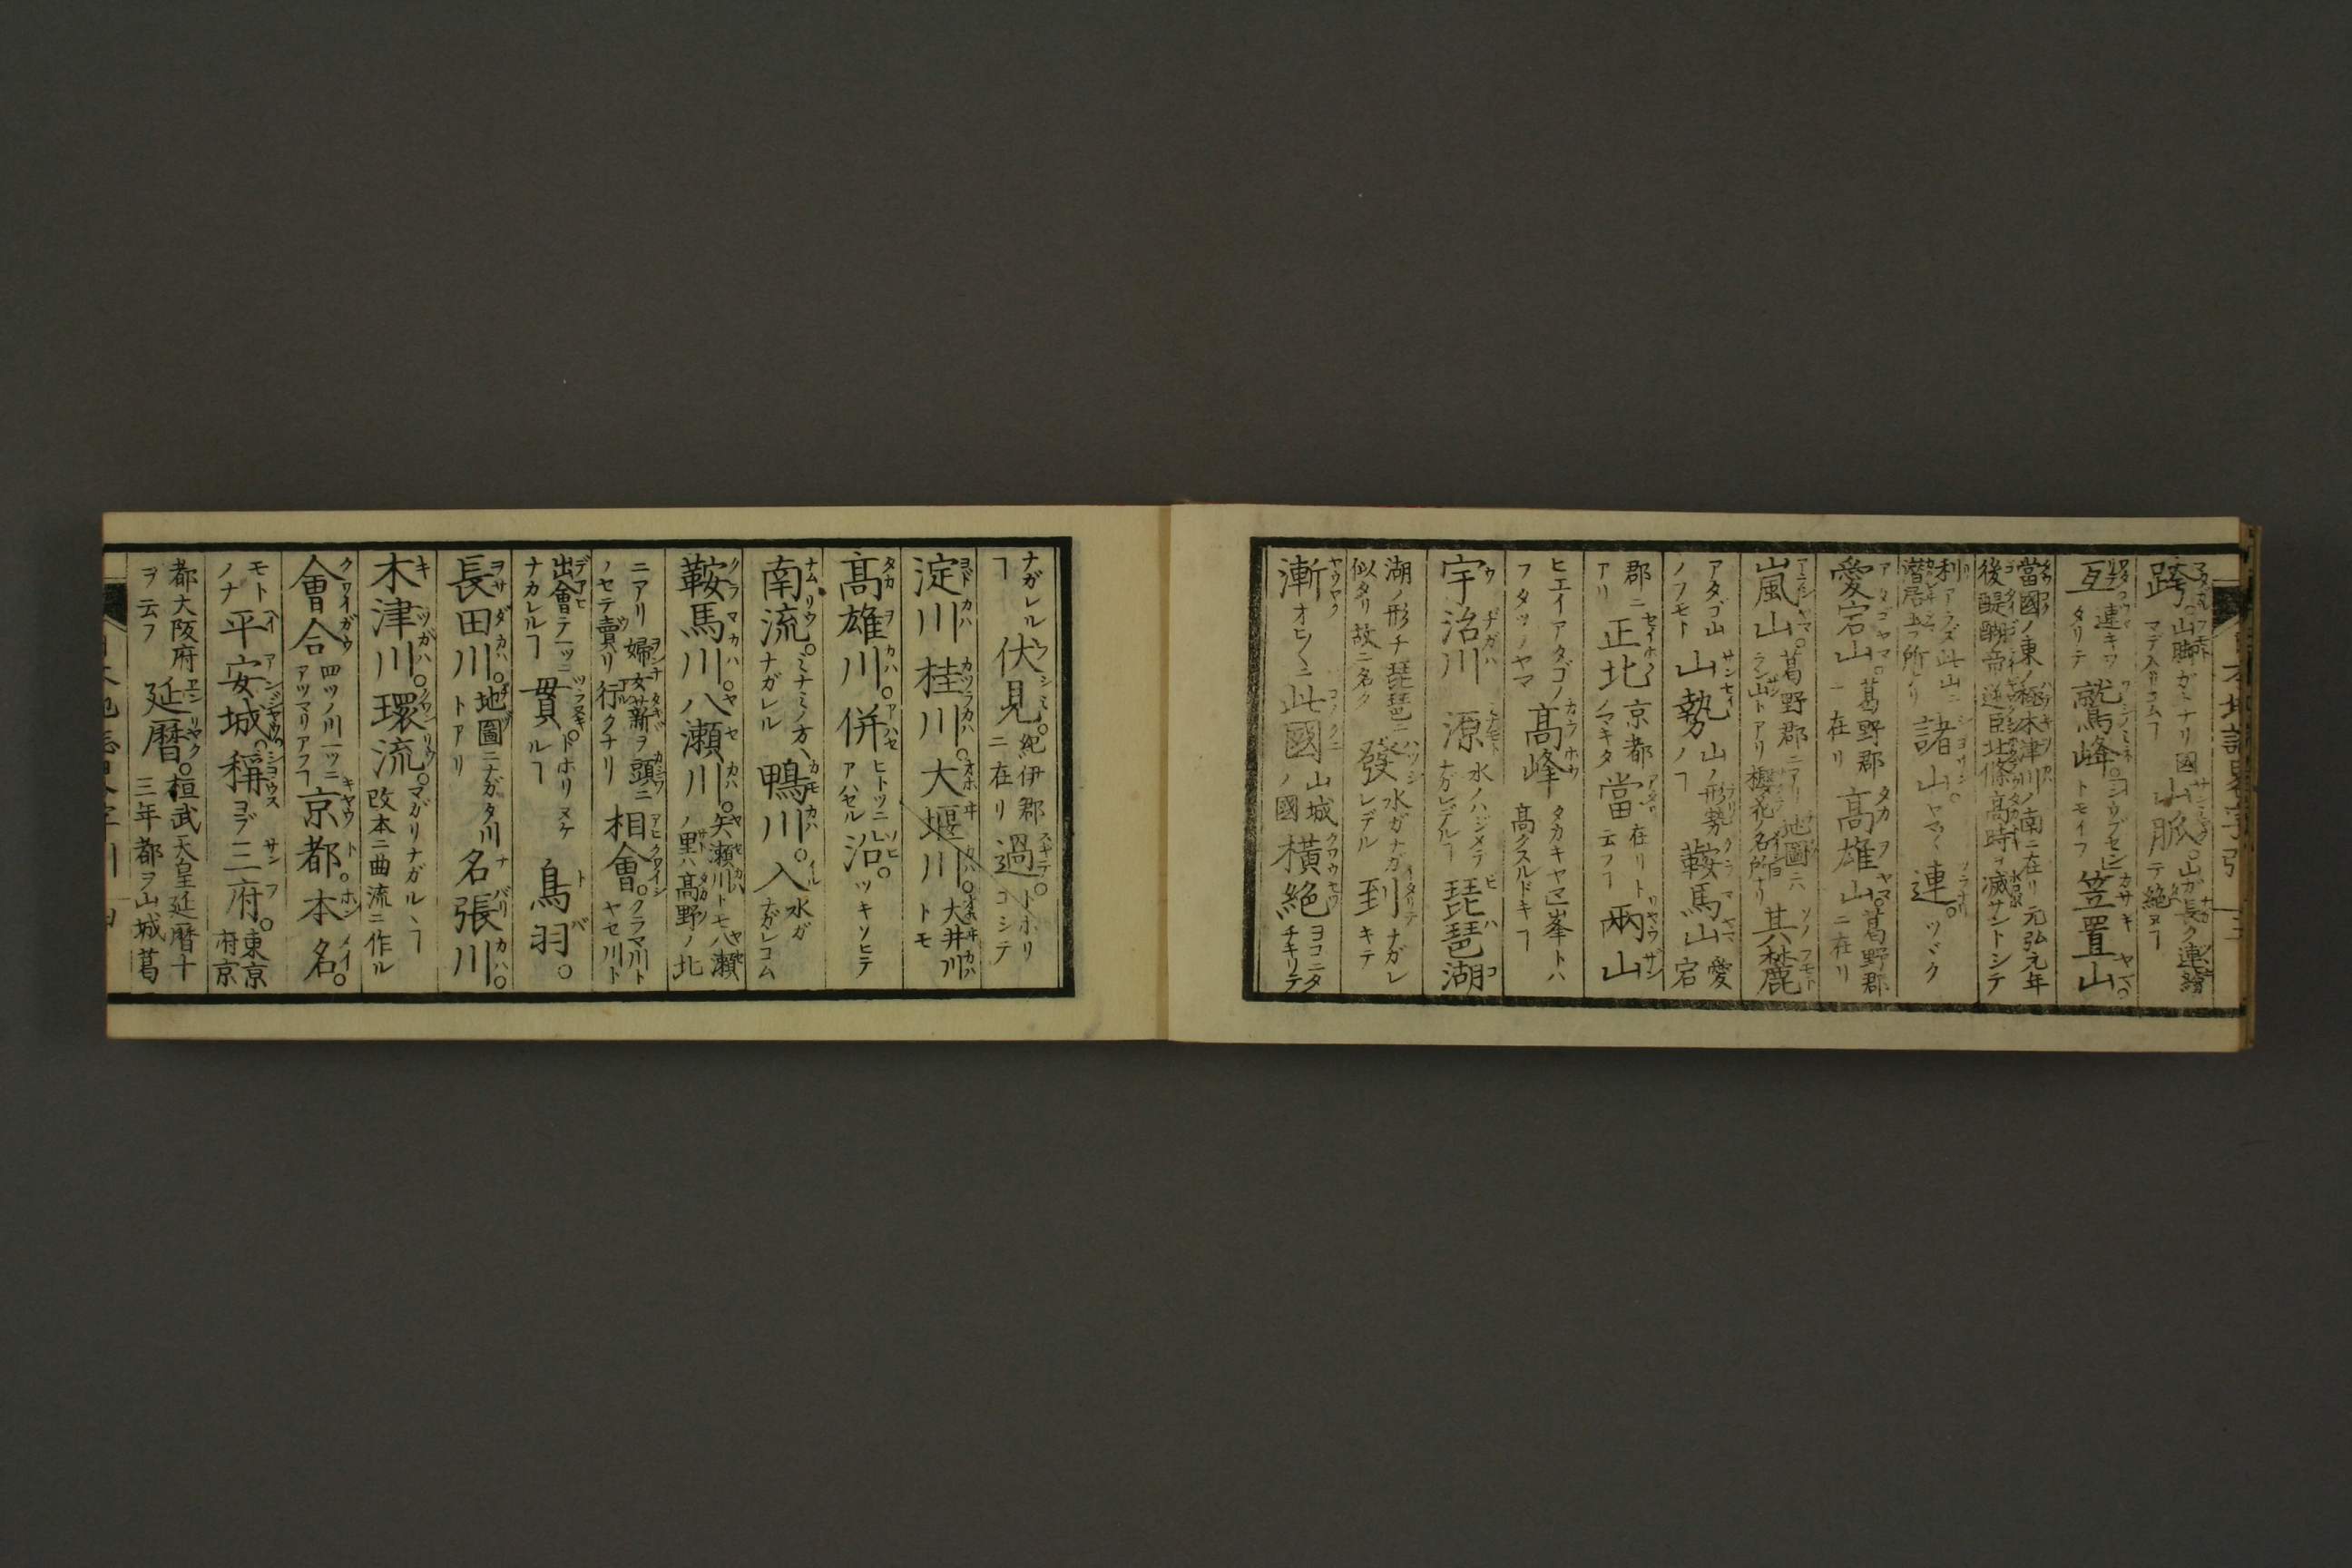 跨 山脚ガミナリ國マデ入リコムヿ 山脈 山ガ長ク連續テ絶ヌヿ
亙 連キワタリテ 鷲峰 トモイフ 笠置山
當國ノ東ノ極木津川ノ南ニ在リ元弘元年後醍醐帝逆臣北條高時ヲ滅サントシテ
利アラズ此山ニ潜居玉フ所ナリ 諸山 ヤマ〳〵 連 ツヾク
愛宕山 葛野郡ニ在リ 高雄山 葛野郡ニ在リ
嵐山 葛野郡ニアリ地圖ニハラン山トアリ櫻花ノ名所ナリ 其麓
アタゴ山ノフモト 山勢 山ノ形勢ノヿ 鞍馬山 愛宕
郡ニアリ 正北 京都ノマキタ 當 在リト云フヿ 兩山
ヒエイアタゴノフタツノヤマ 高峰 タカキヤマ峯トハ高クスルドキヿ
宇治川 源 水ノハジメテナガレデルヿ 琵琶湖
湖ノ形チ琵琶ニ似タリ故ニ名ク 發 水ガナガレデル 到 ナガレキテ
漸 オヒ〳〵ニ 此國 山城ノ國 横絶 ヨコニタチキリテ
ナガレルヿ 伏見 紀伊郡ニ在リ 過 トホリコシテ
淀川 桂川 大堰川 大井川トモ
高雄川 併 ヒトツニアハセル 沿 ツキソヒテ
南流 ミナミノ方ヘナガレル 鴨川 入 水ガナガレコム
鞍馬川 八瀬川 矢瀬川トモ八瀬ノ里ハ高野ノ北
ニアリ婦女薪ヲ頭ニノセテ賣リ行クナリ 相會 クラマ川トヤセ川ト
出會テ一ツニナカレルヿ 貫 トホリヌケルヿ 鳥羽
長田川 地圖ニナガタ川トアリ 名張川
木津川 環流 マガリナガルヽヿ改本ニ曲流ニ作ル
會合 四ツノ川一ツニアツマリアフヿ 京都 本名
モトノナ 平安城 稱 ヨブ 三府 東京府京
都大阪府ヲ云フ 延暦 桓武天皇延暦十三年都ヲ山城葛